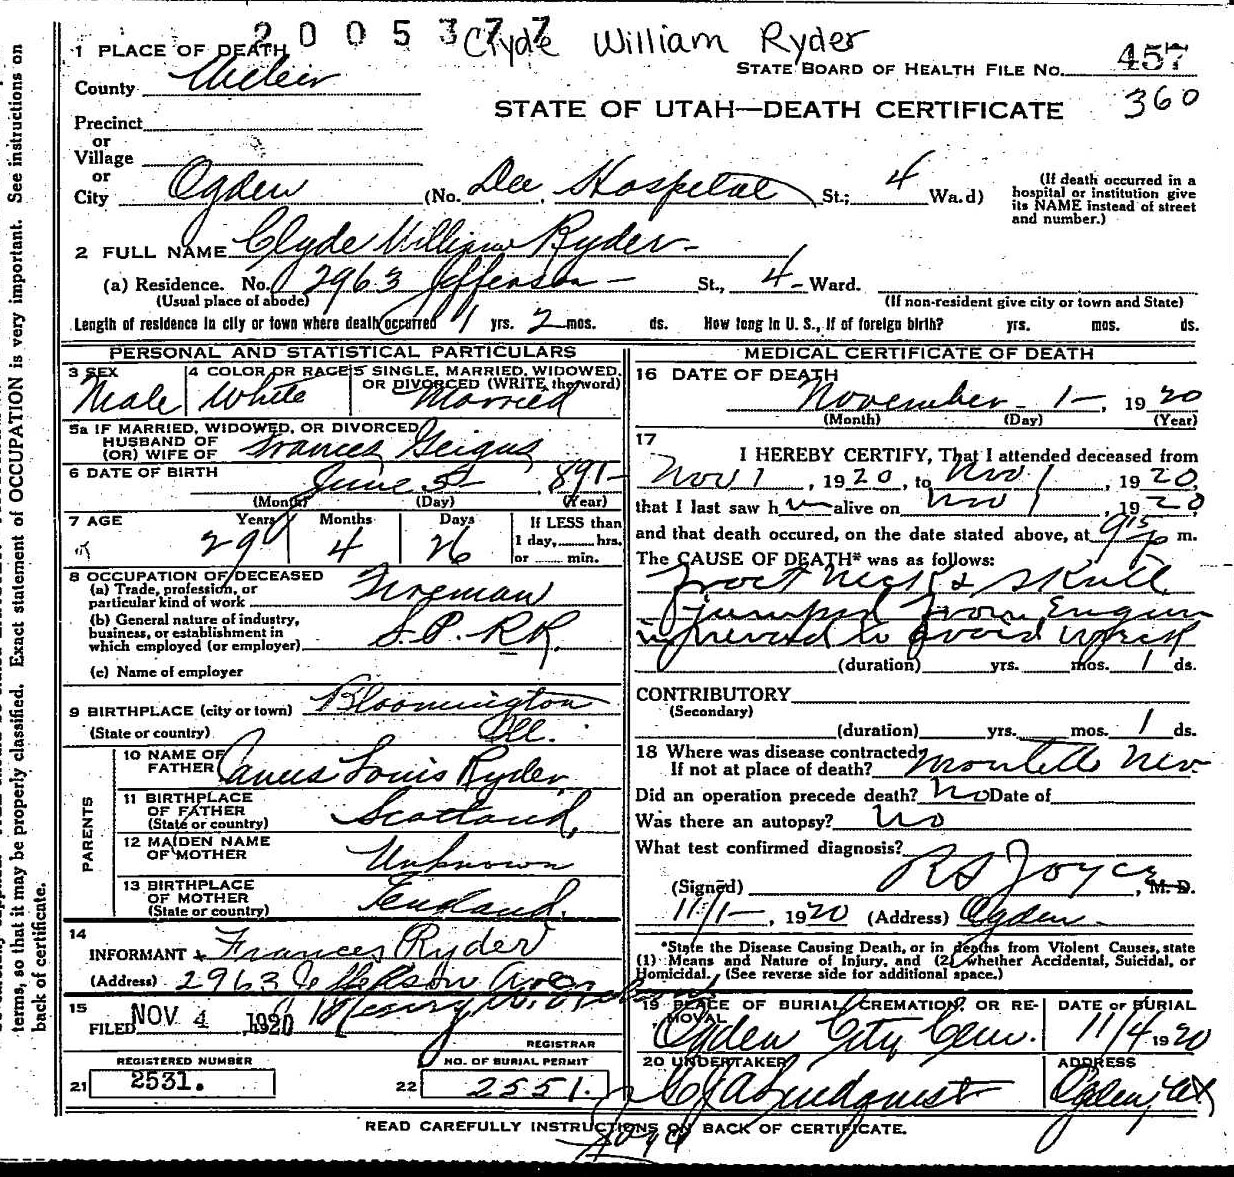 2005377 Clyde William Ryder
1 PLACE OF DEATH
STATE BOARD OF HEALTH FILE No. 457
County Weber
STATE OF UTAH—DEATH CERTIFICATE 360
Precinct
or
Village
or
City Ogden (No. Dee Hospital St.; 4 Wa.d)
(If death occurred in a
hospital or institution give
its NAME instead of street
and number.)
2 FULL NAME Clyde William Ryder
(a) Residence. No. 2963 Jefferson St., 4 Ward.
(Usual place of abode) (If non-resident give city or town and State)
Length of residence in city or town where death occurred 1 yrs. 2 mos. ds. How long in U. S., if of foreign birth? yrs. mos. ds.
PERSONAL AND STATISTICAL PARTICULARS
3 SEX Male
4 COLOR OR RACE White
5 SINGLE, MARRIED, WIDOWED,
OR DIVORCED (WRITE the word)
Married
5a IF MARRIED, WIDOWED, OR DIVORCED
HUSBAND OF
(OR) WIFE OF Frances Geigus
6 DATE OF BIRTH June 5 1891
(Month) (Day) (Year)
7 AGE Years Months Days
29 4 26
If LESS than
1 day, hrs.
or min.
8 OCCUPATION OF DECEASED
(a) Trade, profession, or
particular kind of work Fireman
(b) General nature of industry,
business, or establishment in
which employed (or employer) S.P. RR.
(c) Name of employer
9 BIRTHPLACE (city or town) Bloomington
(State or country) Ill.
PARENTS
10 NAME OF
FATHER Louis Ryder
11 BIRTHPLACE
OF FATHER
(State or country) Scotland
12 MAIDEN NAME
OF MOTHER Unknown
13 BIRTHPLACE
OF MOTHER
(State or country) England
14
INFORMANT Frances Ryder
(Address) 2963 Jefferson Ave
15
FILED NOV 4 1920 Henry W.
REGISTRAR
REGISTERED NUMBER
21 2531.
NO. OF BURIAL PERMIT
22 2551.
MEDICAL CERTIFICATE OF DEATH
16 DATE OF DEATH
November 1, 1920
(Month) (Day) (Year)
17
I HEREBY CERTIFY, That I attended deceased from
Nov 1, 1920, to Nov 1, 1920,
that I last saw him alive on Nov 1, 1920,
and that death occured, on the date stated above, at 915 p m.
The CAUSE OF DEATH* was as follows:
Fract neck & Skull
jumped from Engine
to avoid wreck
(duration) yrs. mos. 1 ds.
CONTRIBUTORY
(Secondary)
(duration) yrs. mos. 1 ds.
18 Where was disease contracted
If not at place of death? Montello Nev
Did an operation precede death? No Date of
Was there an autopsy? No
What test confirmed diagnosis?
(Signed) R S Joyce, M. D.
11/1, 1920 (Address) Ogden
*State the Disease Causing Death, or in deaths from Violent Causes, state
(1) Means and Nature of Injury, and (2) whether Accidental, Suicidal, or
Homicidal. (See reverse side for additional space.)
19 PLACE OF BURIAL, CREMATION, OR RE-
MOVAL
Ogden City Cem.
DATE OF BURIAL
11/4 1920
20 UNDERTAKER
Lindquist
ADDRESS
Ogden, Ut
READ CAREFULLY INSTRUCTIONS ON BACK OF CERTIFICATE.
terms, so that it may be properly classified. Exact statement of OCCUPATION is very important. See instructions on
back of certificate.